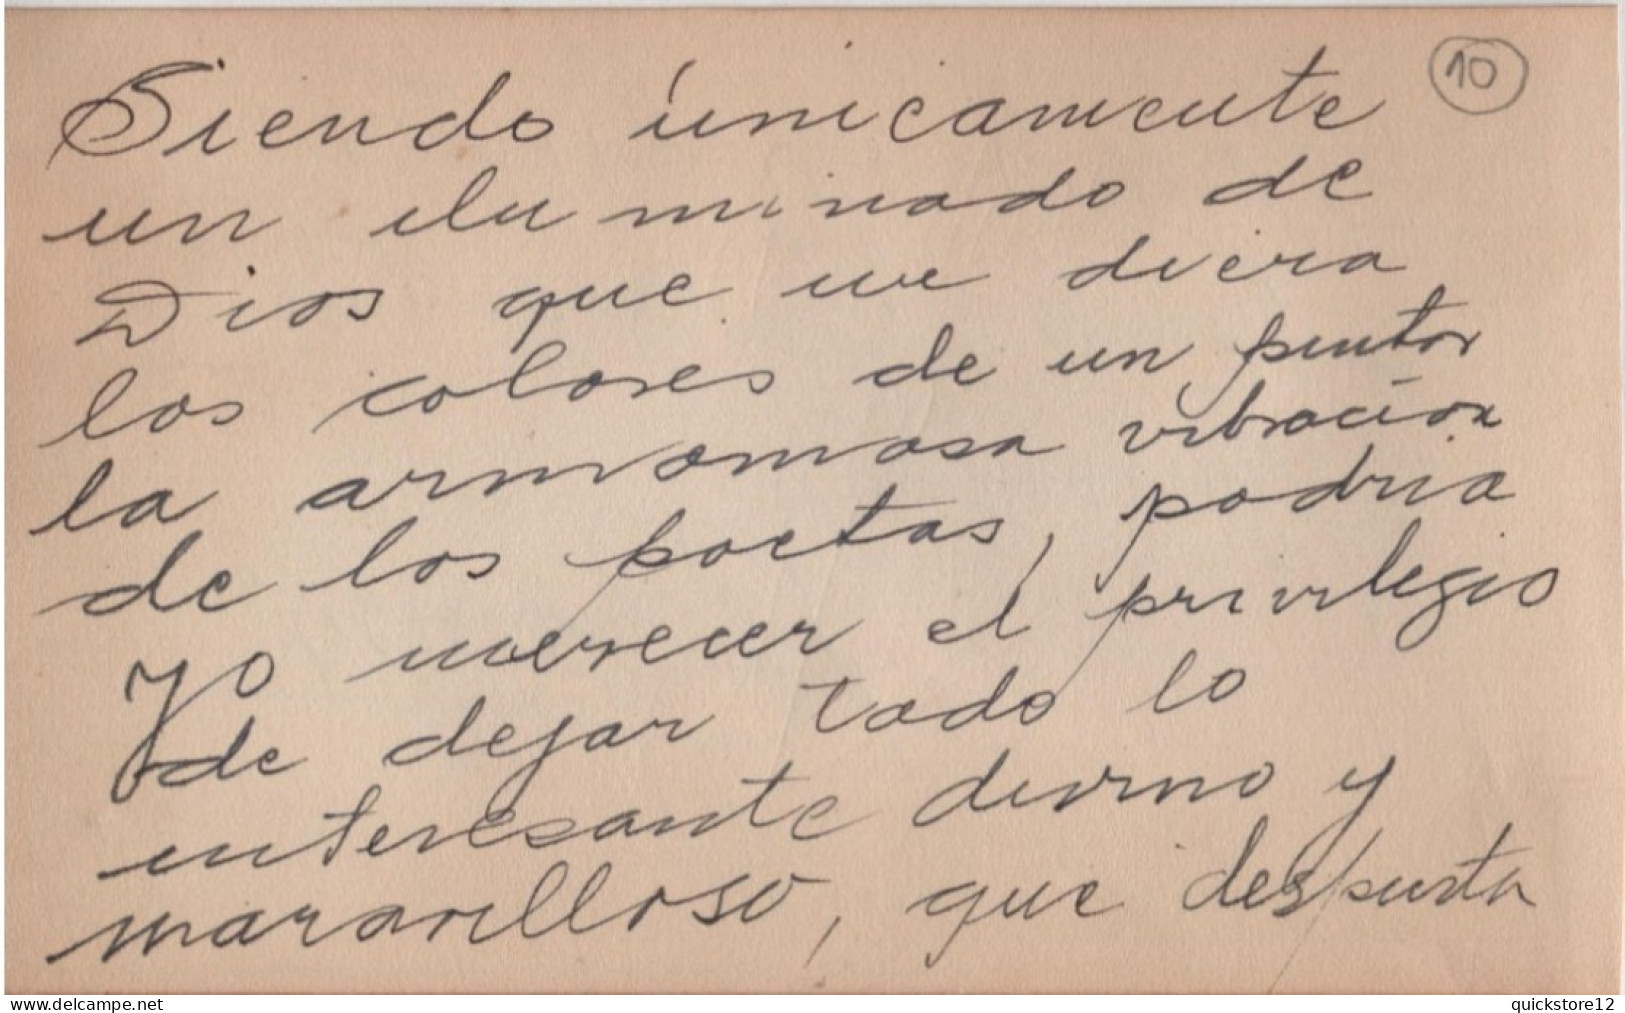 Siendo únicamente 10
un iluminado de
Dios que me diera
los colores de un pintor
la armoniosa vibración
de los poetas, podria
yo merecer el privilegio
de dejar todo lo
interesante divino y
maravilloso, que despierta
www.delcampe.net quickstore12